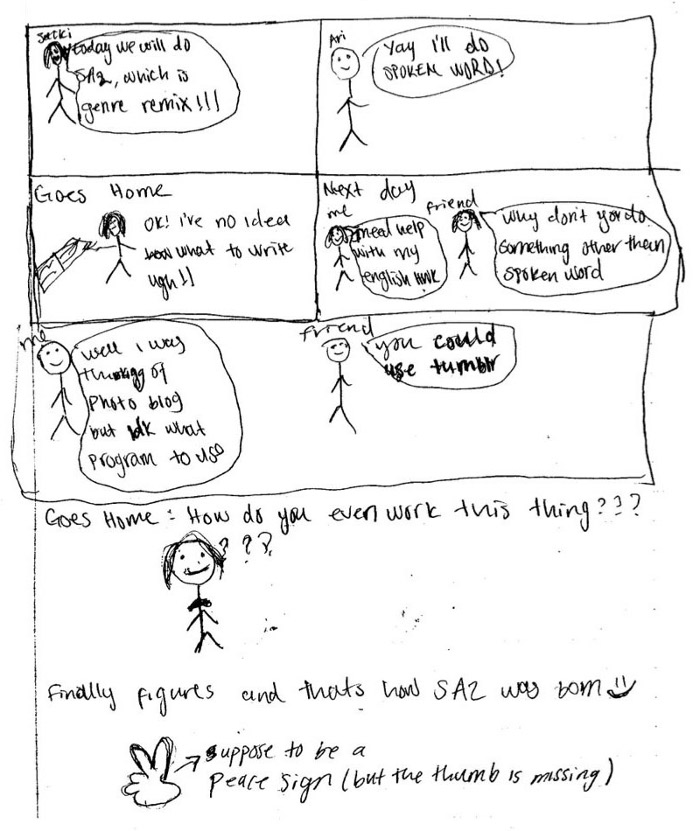 today we will do
SA2, which is
genre remix!!!
Ari
Yay I'll do
SPOKEN WORD!
Goes Home
OK! i've no idea
what to write
ugh!!
Next day
me
I need help
with my
english HWK
friend
Why don't you do
something other than
spoken word
me
well i was
thinking of
Photo blog
but idk what
program to use
friend
you could
use tumblr
Goes Home : How do you even work this thing???
???
Finally figures and thats how SA2 was born
suppose to be a
peace sign (but the thumb is missing)